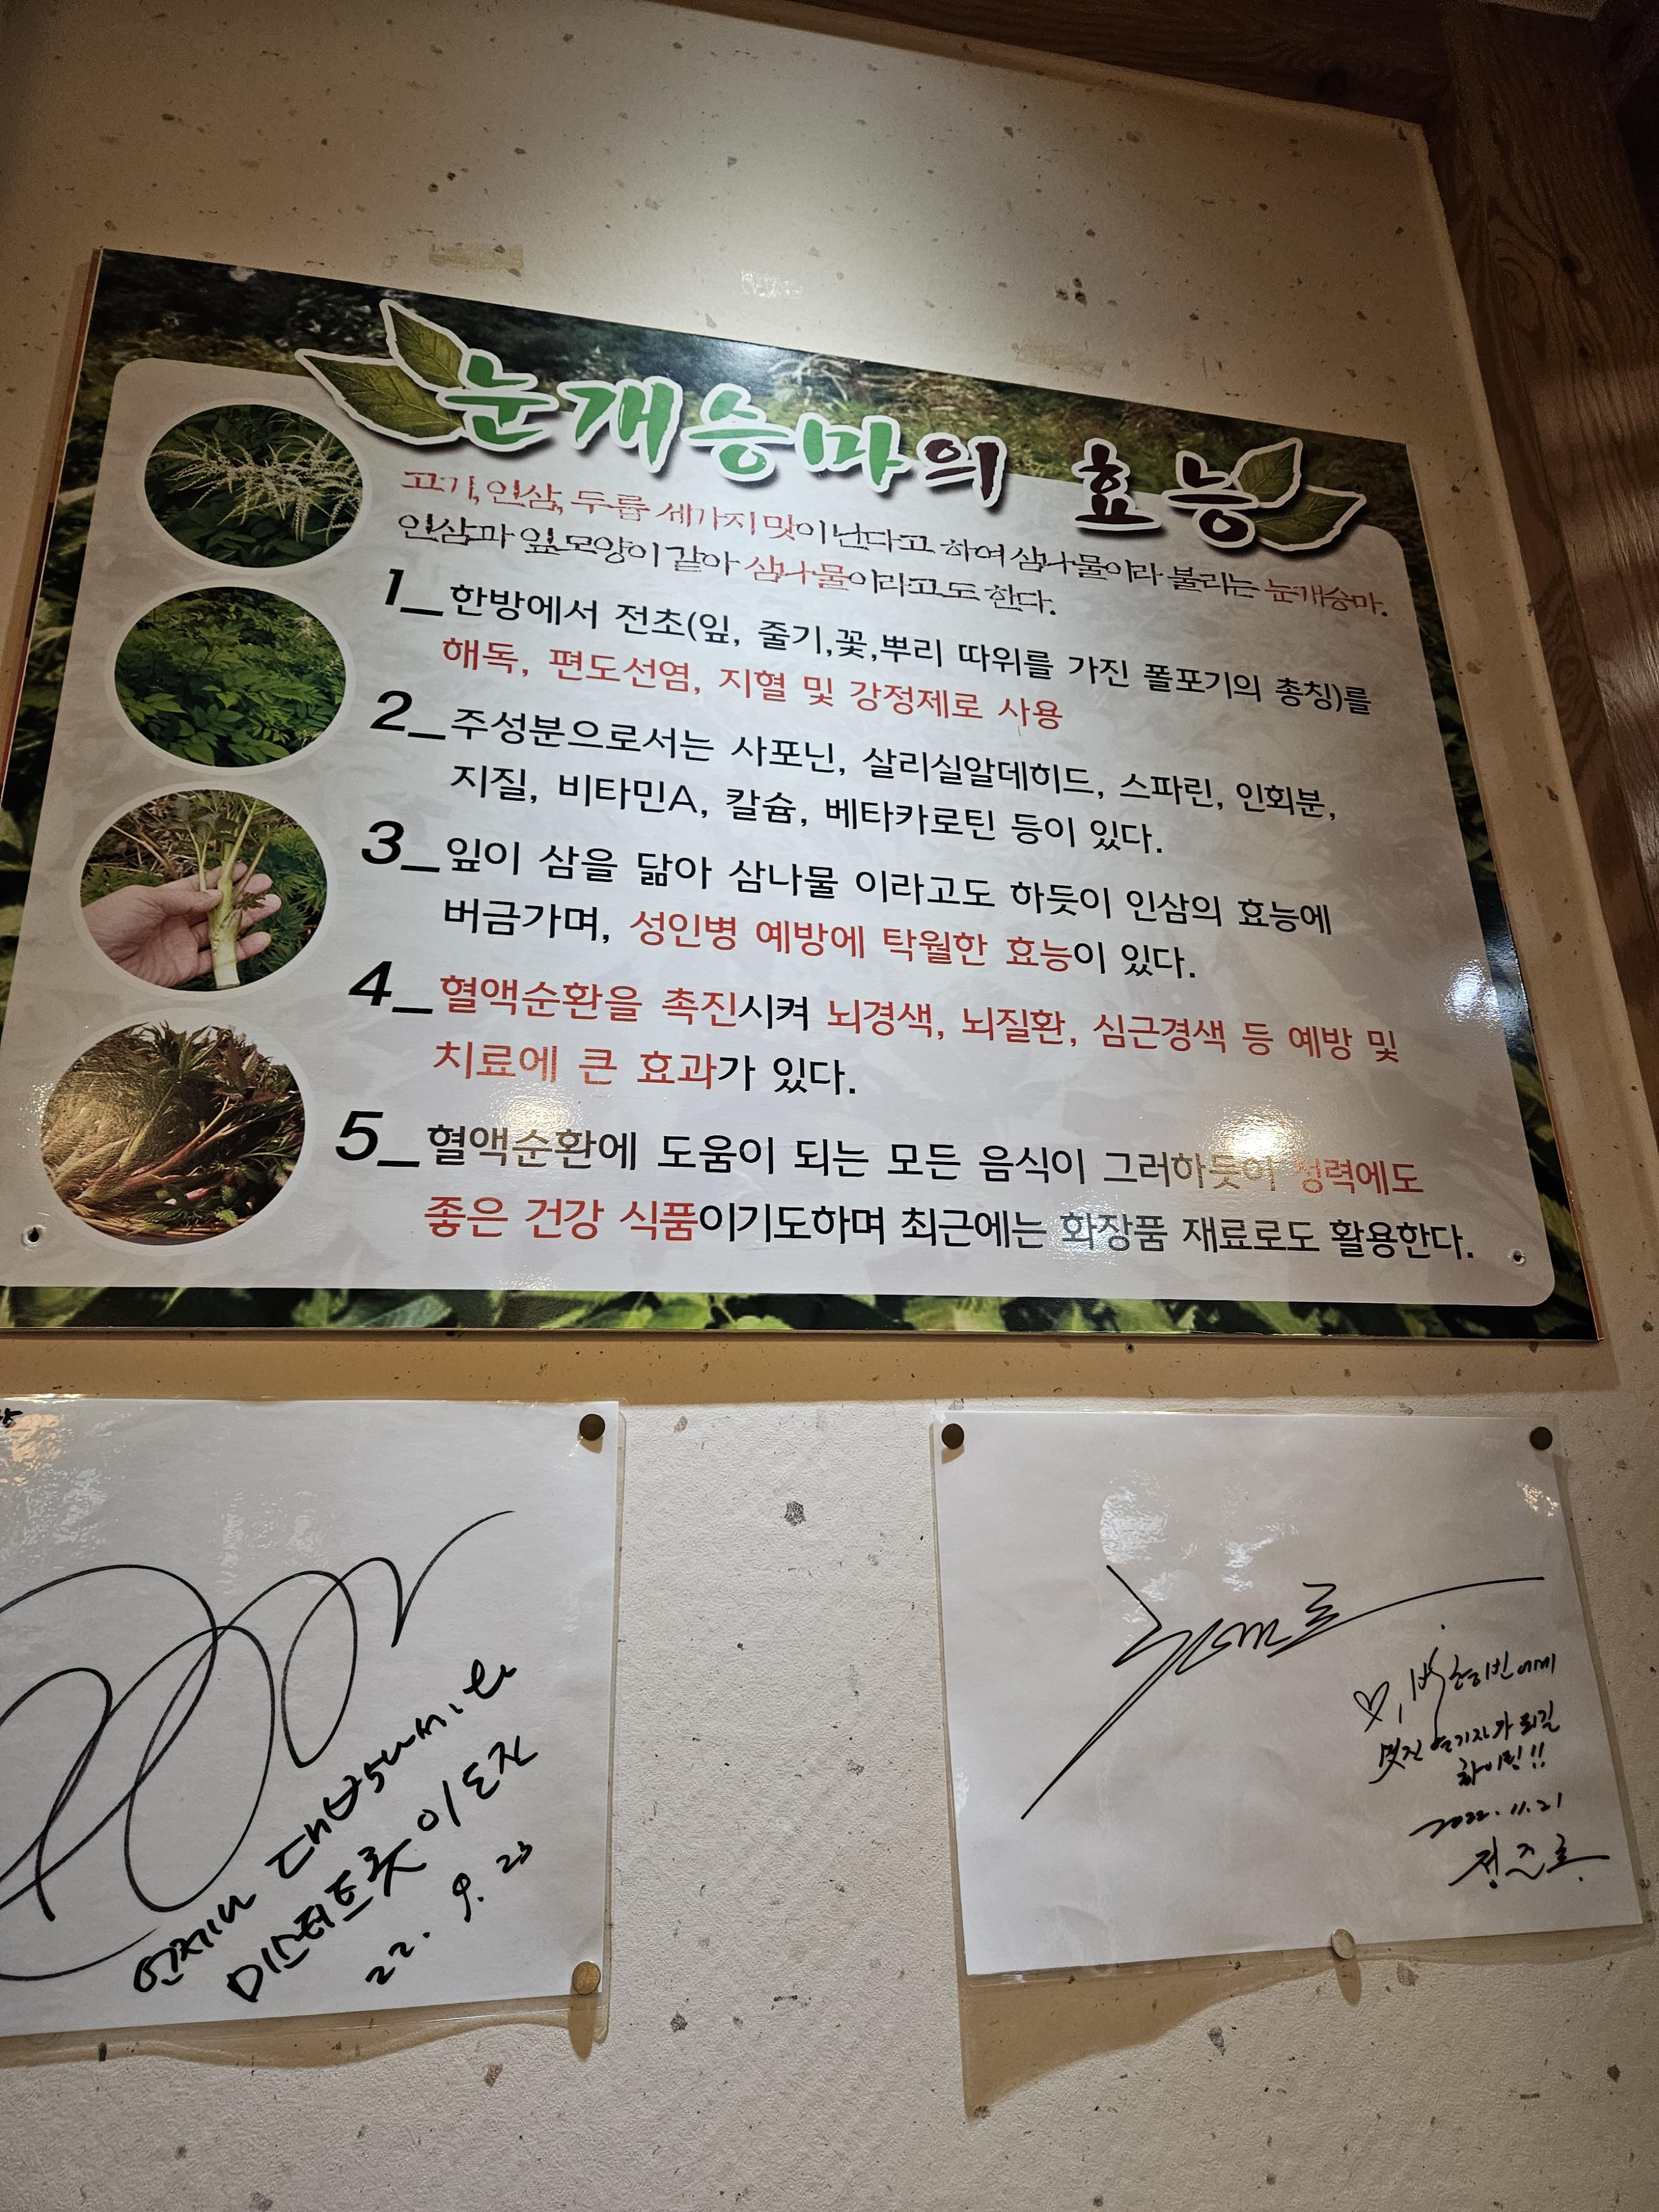 눈개승마의 효능
고기, 인삼, 두릅 세가지 맛이 난다고 하여 삼나물이라 불리는 눈개승마.
인삼과 잎모양이 같아 삼나물이라고도 한다.
1_한방에서 전초(잎, 줄기,꽃,뿌리 따위를 가진 폴포기의 총칭)를
해독, 편도선염, 지혈 및 강정제로 사용
2_주성분으로서는 사포닌, 살리실알데히드, 스파린, 인회분,
지질, 비타민A, 칼슘, 베타카로틴 등이 있다.
3_잎이 삼을 닮아 삼나물 이라고도 하듯이 인삼의 효능에
버금가며, 성인병 예방에 탁월한 효능이 있다.
4_혈액순환을 촉진시켜 뇌경색, 뇌질환, 심근경색 등 예방 및
치료에 큰 효과가 있다.
5_혈액순환에 도움이 되는 모든 음식이 그러하듯이 정력에도
좋은 건강 식품이기도하며 최근에는 화장품 재료로도 활용한다.
언제나 대박나세요
미스터트롯 이도진
22. 9. 23
멋진 연기자가 되길
화이팅!!
2022.11.21
정준호